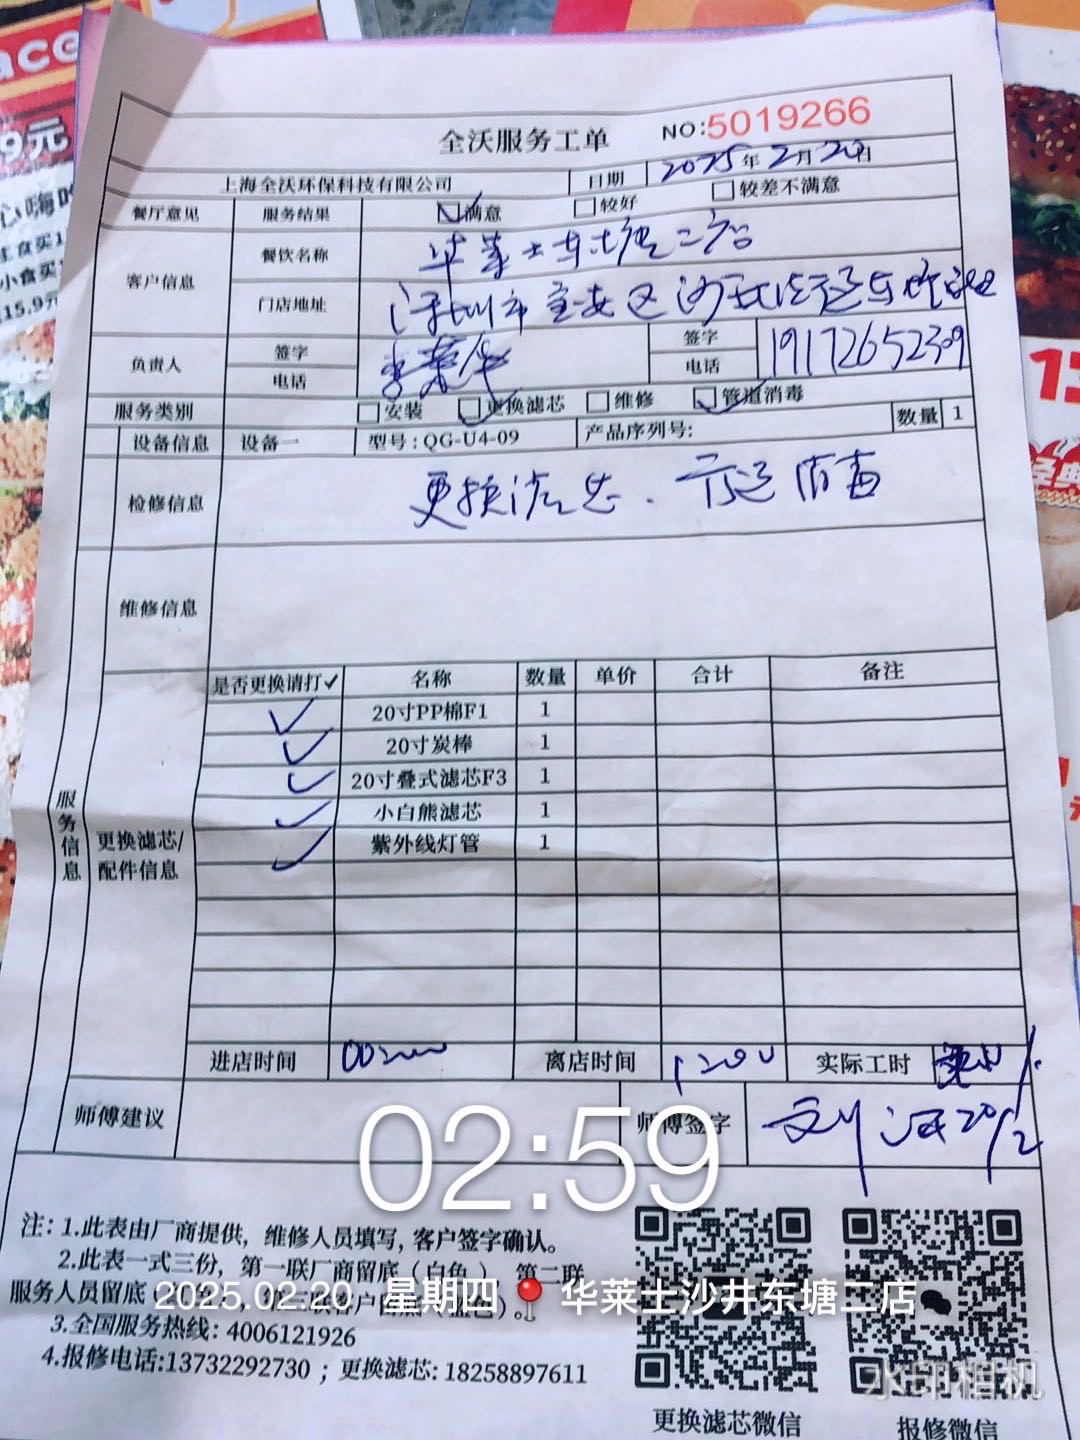 ace
9元
心嗨吃
15.9元
全沃服务工单 NO:5019266
上海全沃环保科技有限公司 日期 2025年2月20日
餐厅意见 服务结果 满意 较好 较差不满意
客户信息 餐饮名称 华莱士东塘二店
门店地址 深圳市宝安区沙井
负责人 签字 签字
电话 电话 19172652309
服务类别 安装 更换滤芯 维修 管道消毒
设备信息 设备一 型号:QG-U4-09 产品序列号: 数量 1
检修信息 更换滤芯、管道消毒
维修信息
是否更换请打✓ 名称 数量 单价 合计 备注
✓ 20寸PP棉F1 1
✓ 20寸炭棒 1
✓ 20寸叠式滤芯F3 1
✓ 小白熊滤芯 1
✓ 紫外线灯管 1
服务信息
更换滤芯/
配件信息
进店时间 离店时间 实际工时
师傅建议 师傅签字 20/2
02:59
注: 1.此表由厂商提供，维修人员填写, 客户签字确认。
2.此表一式三份，第一联厂商留底（白色），第二联
服务人员留底
2025.02.20 星期四 华莱士沙井东塘二店
3.全国服务热线: 4006121926
4.报修电话:13732292730 ; 更换滤芯: 18258897611
更换滤芯微信 报修微信
水印相机